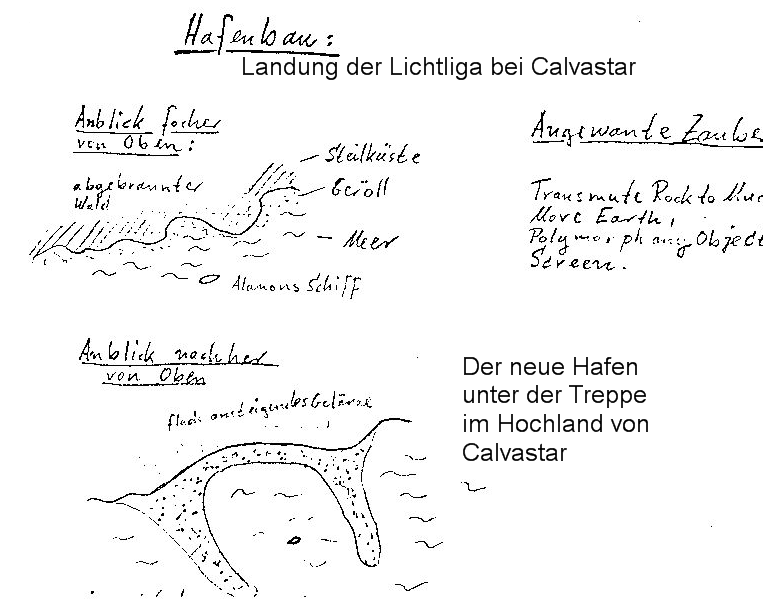 Hafenbau:
Landung der Lichtliga bei Calvastar
Anblick
von Oben:
Steilküste
Geröll
abgebrannter
Wald
Meer
Alamons Schiff
Angewante Zaube
Transmute Rock to Mu
Move Earth,
Polymorph any Object
Screen.
Anblick nachher
von Oben
flach ansteigendes Gelände
Der neue Hafen
unter der Treppe
im Hochland von
Calvastar